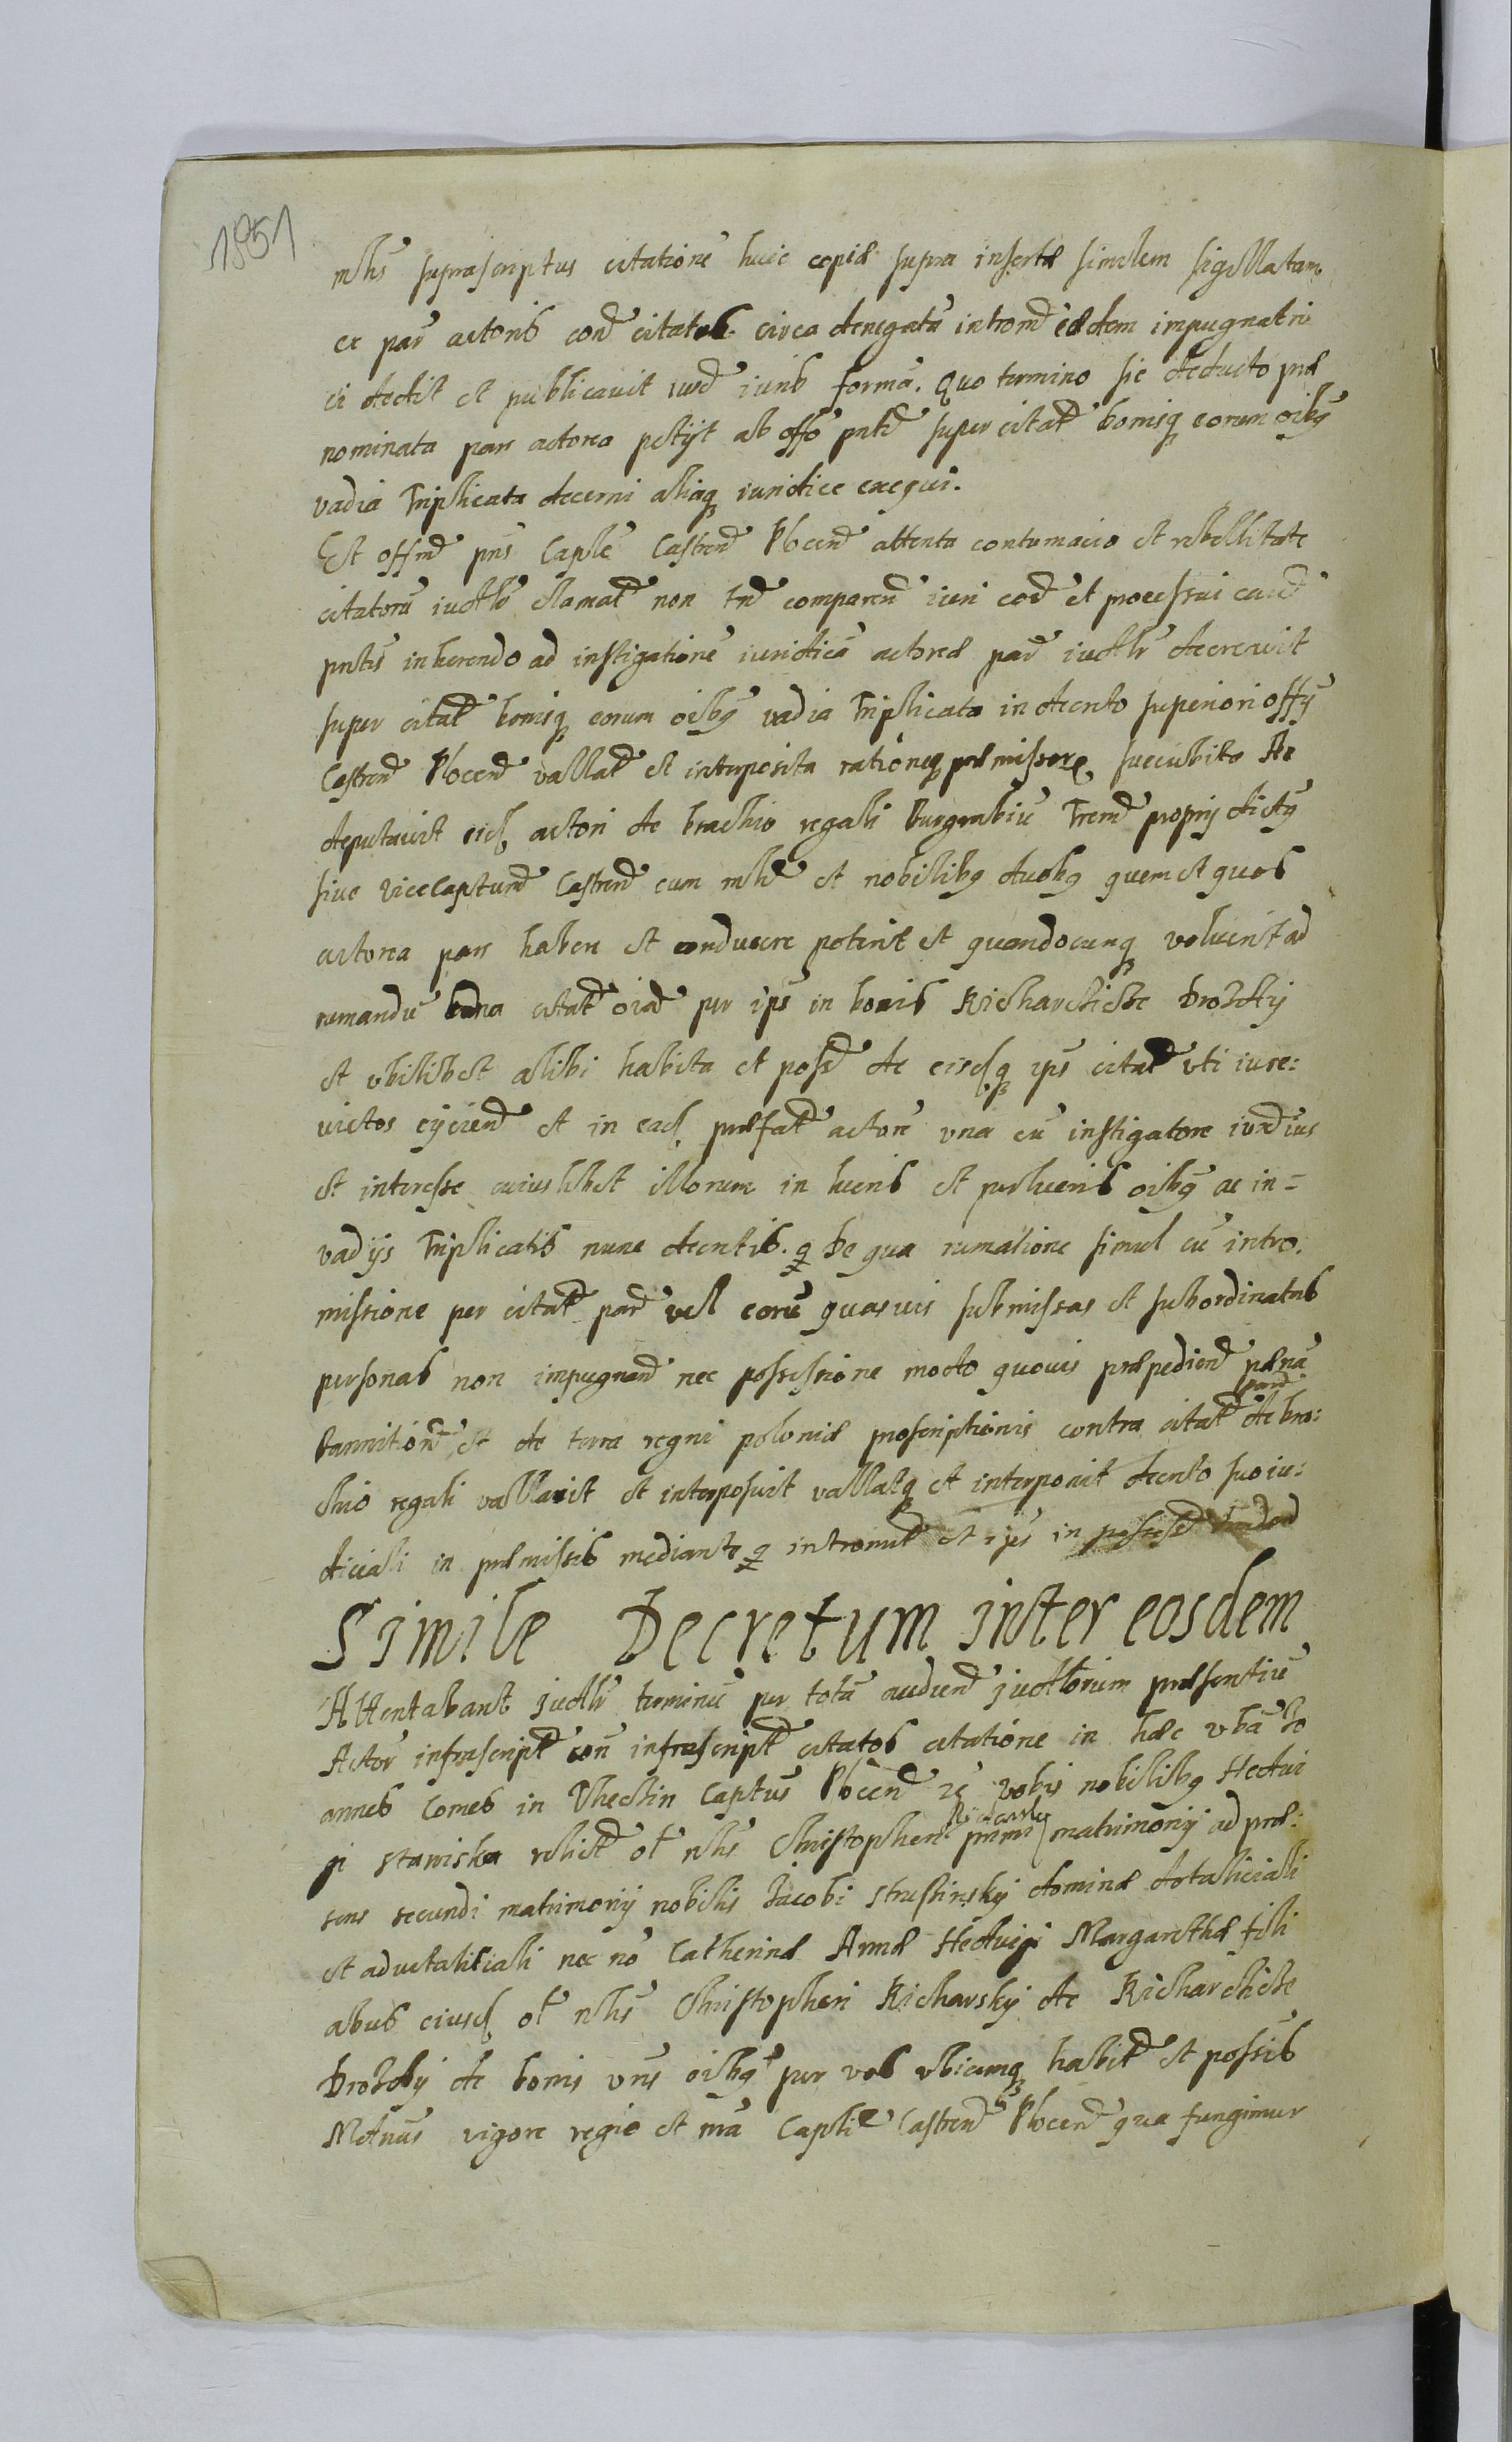 1851
mlis suprascriptus citatione huic copiæ supra insertæ similem sigillatam
ex par actoris con citatos circa denegatā intromis eædem impugnatri
ci dedit et publicavit iuxta iuris formā. Quo termino sic deducto præ
nominata pars actorea petijt ab offo pnti super citat bonisq eorum oibg
vadia Triplicata decerni aliaq iuridice exequi.
Et offm pns Caple Castren Plocen attenta contumacia et rebellitate
citatorū iudlr clamat non tn comparen iuri eod et processui eaed
pntis inherendo ad instigationē iuridicā actoreæ par iudlr decrevit
super citat bonisq eorum oibg vadia Triplicata in decreto superiori offij
Castren Plocen vallat et interposita rationeq præmissorꝝ succubita Ac
deputavit eid actori de brachio regali Burgrabiū Terren proprij dictg
sive ViceCaptum Castren cum mli et nobilibg duobg quem et quos
actorea pars habere et conducere poterit et quandocunq voluerit ad
rumandū bona citat oia per ipš in bonis Richarcicze Drozdy
et ubilibet alibi habita et poss de eisdq ips citat uti iure:
victos eijciend et in ead præfat actorē una cū instigatore iurd ius
et interesse cuiuslibet illorum in lucris et perlucris oibg ac in=
vadijs Triplicatis nunc decretis. q De qua rumatione simul cū intro.
missione per citat par vel eorū quasvis submissas et subordinatas
personas non impugnan nec possessione modo quovis præpedien pæna
bannition et de terra regni poloniæ proscriptionis contra citat par de bra:
chio regali vallavit et interposuit vallatq et interponit decreto suo iu:
diciali in præmissis mediante q intromit et ipš in possess
Simile Decretum inter eosdem
Attentabant Judlr terminū per totā audien judiciorum præsentiū
Actor infrascript con infrascript citatos citatione in hæc vba Jo
annes Comes in Uhectin Captus Plocen zc vobis nobilibg Hedvi
gi Staniska relict ol nlis Christopheri Richarsky primi matrimonij ad præ:
sens secundi matrimonij nobilis Jacobi Strussinsky dominæ dotaliciali
et advitalitiali nec no Catherinæ Annæ Hedvigi Margarethæ fili
abus eiusd ol nlis Christopheri Richarsky de Richarcicze
Drozdy de bonis vris oibg per vos ubicunq habit et possis
Mdmus vigore regio et mā Caplie Castren Plocen qua fungimur